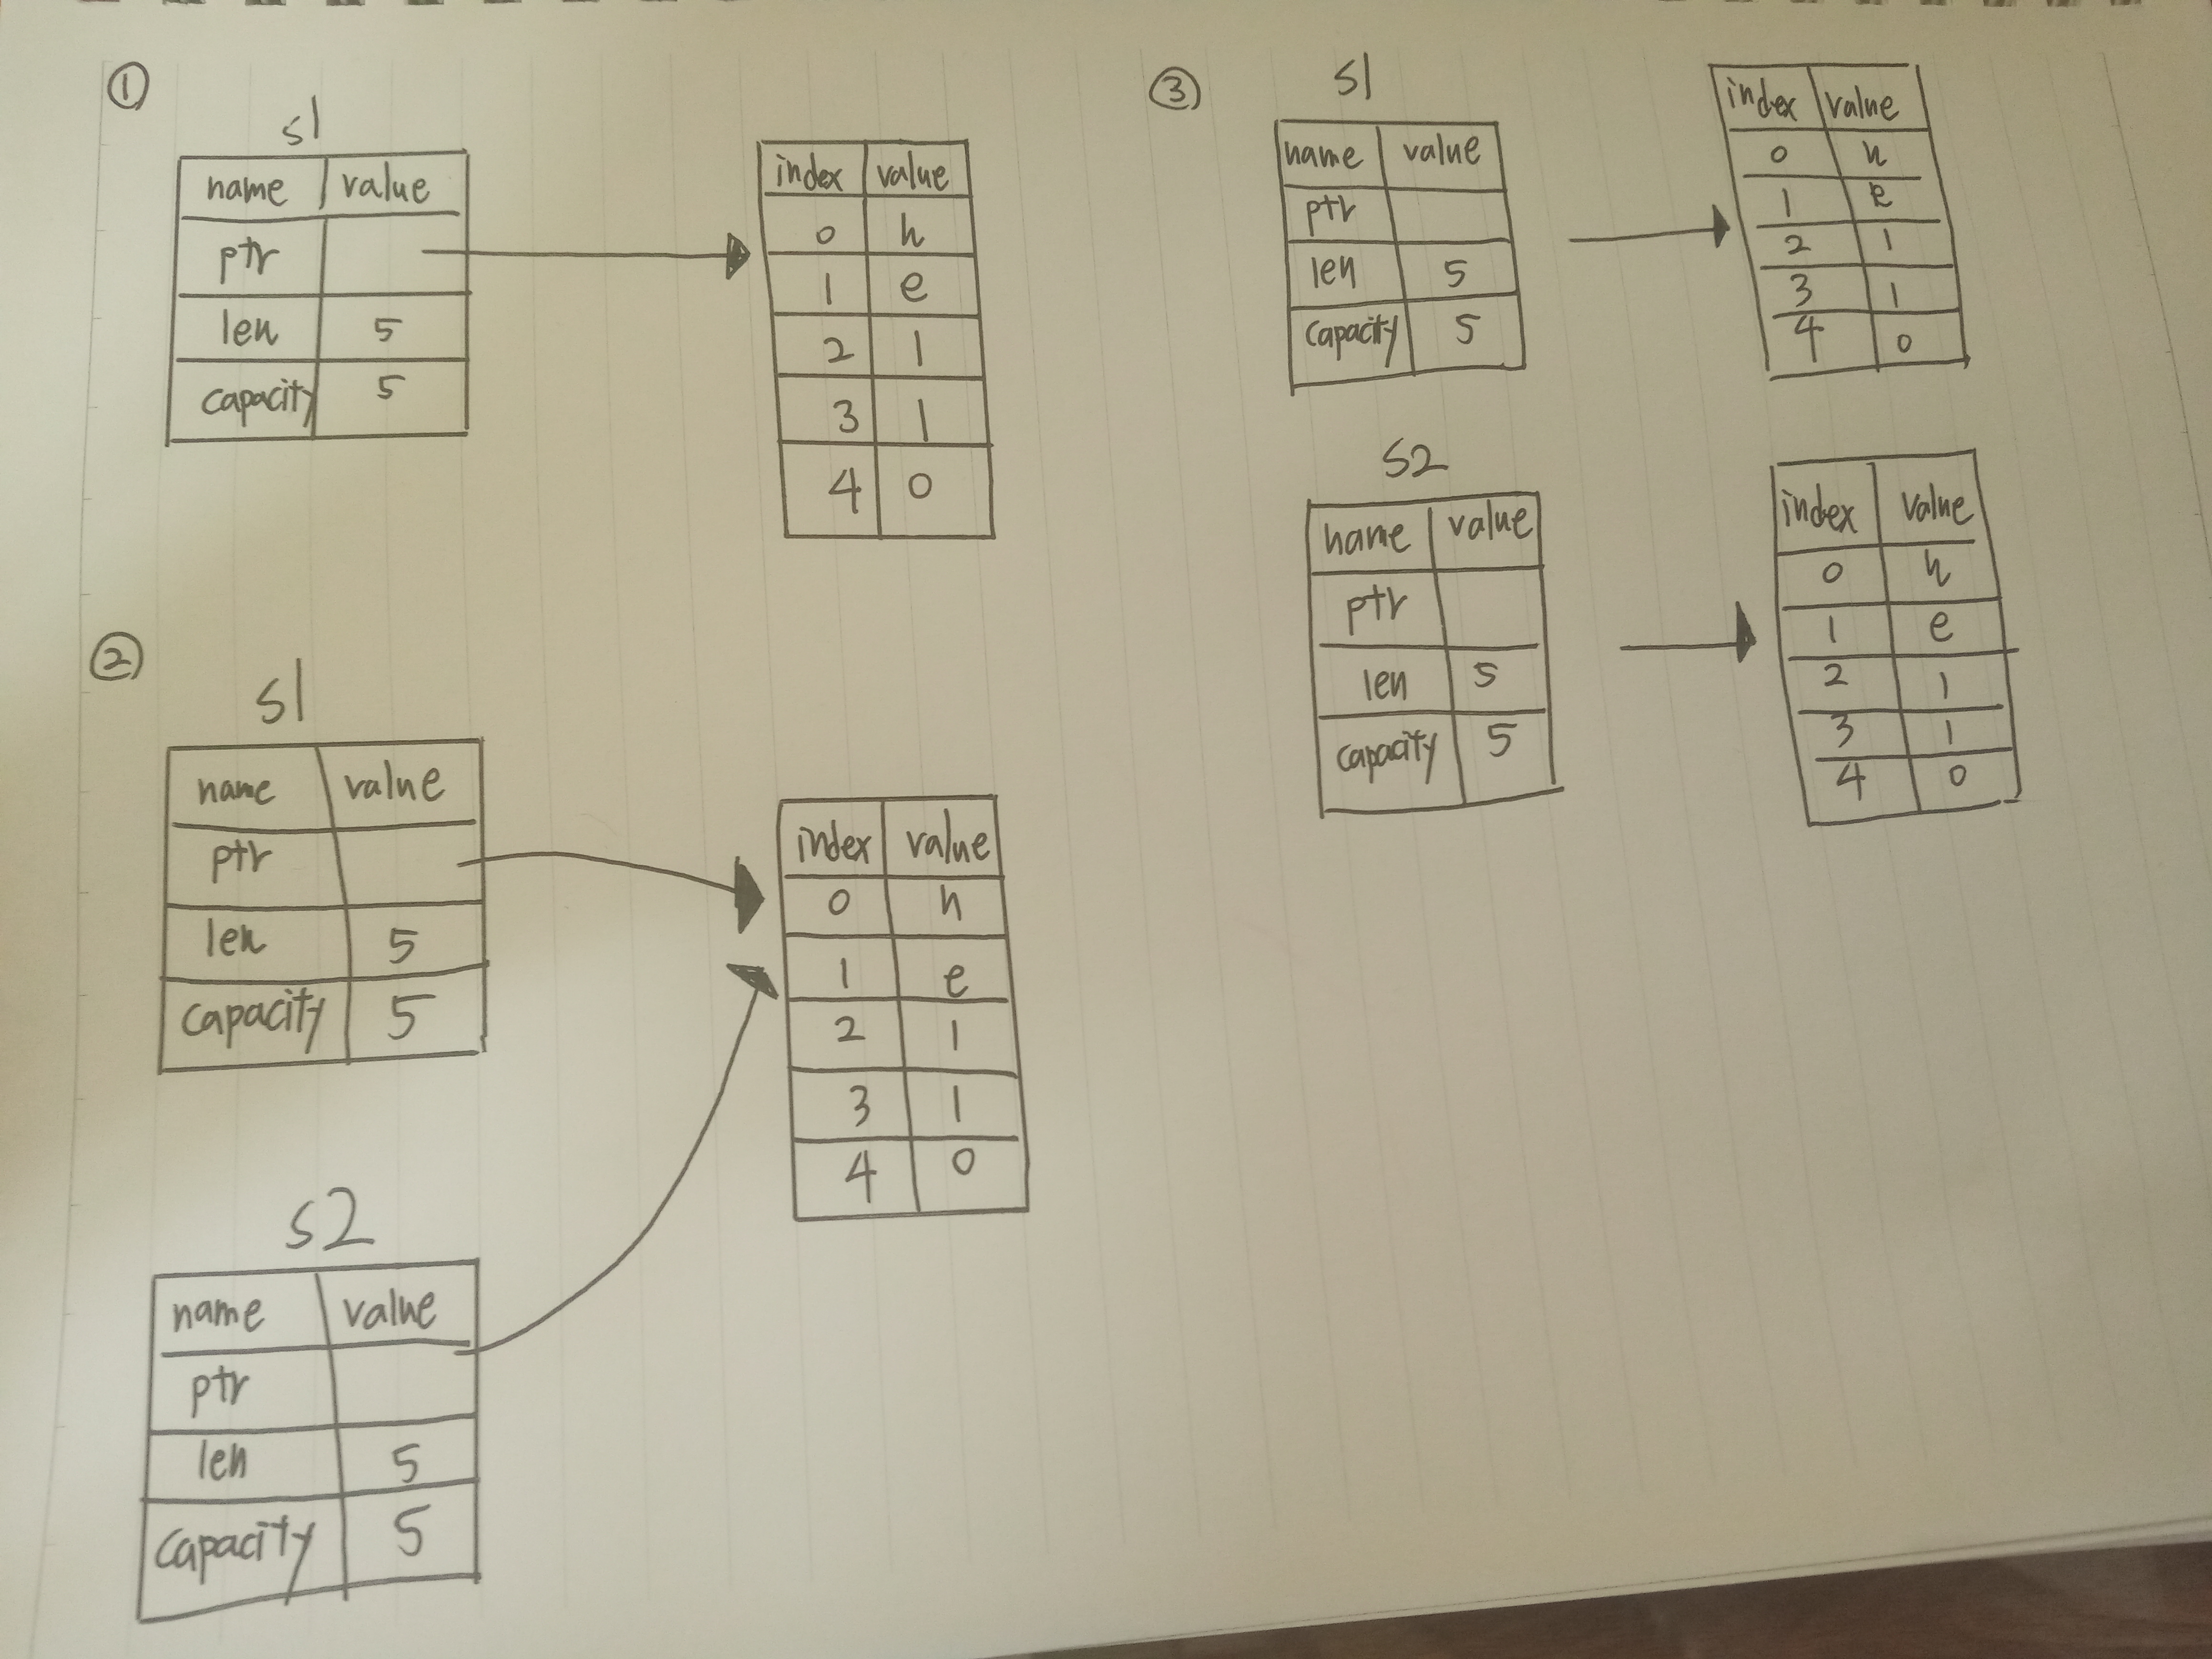 ①
s1
name value
ptr
len 5
capacity 5
index value
0 h
1 e
2 l
3 l
4 o
②
s1
name value
ptr
len 5
capacity 5
s2
name value
ptr
len 5
capacity 5
index value
0 h
1 e
2 l
3 l
4 o
③
s1
name value
ptr
len 5
capacity 5
index value
0 h
1 e
2 l
3 l
4 o
s2
name value
ptr
len 5
capacity 5
index value
0 h
1 e
2 l
3 l
4 o